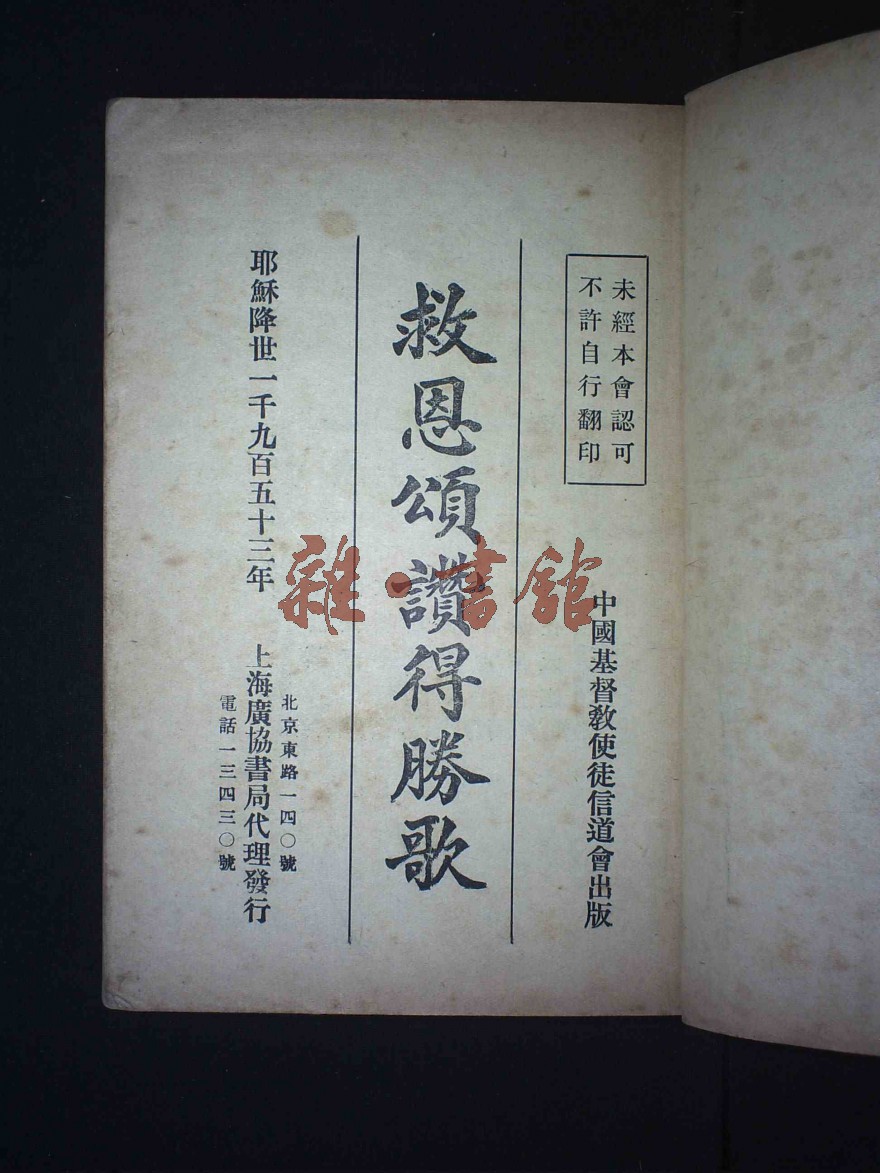 未經本會認可
不許自行翻印
中國基督敎使徒信道會出版
救恩頌讚得勝歌
耶穌降世一千九百五十三年
上海廣協書局代理發行
北京東路一四〇號
電話一三四三〇號
雜·書館